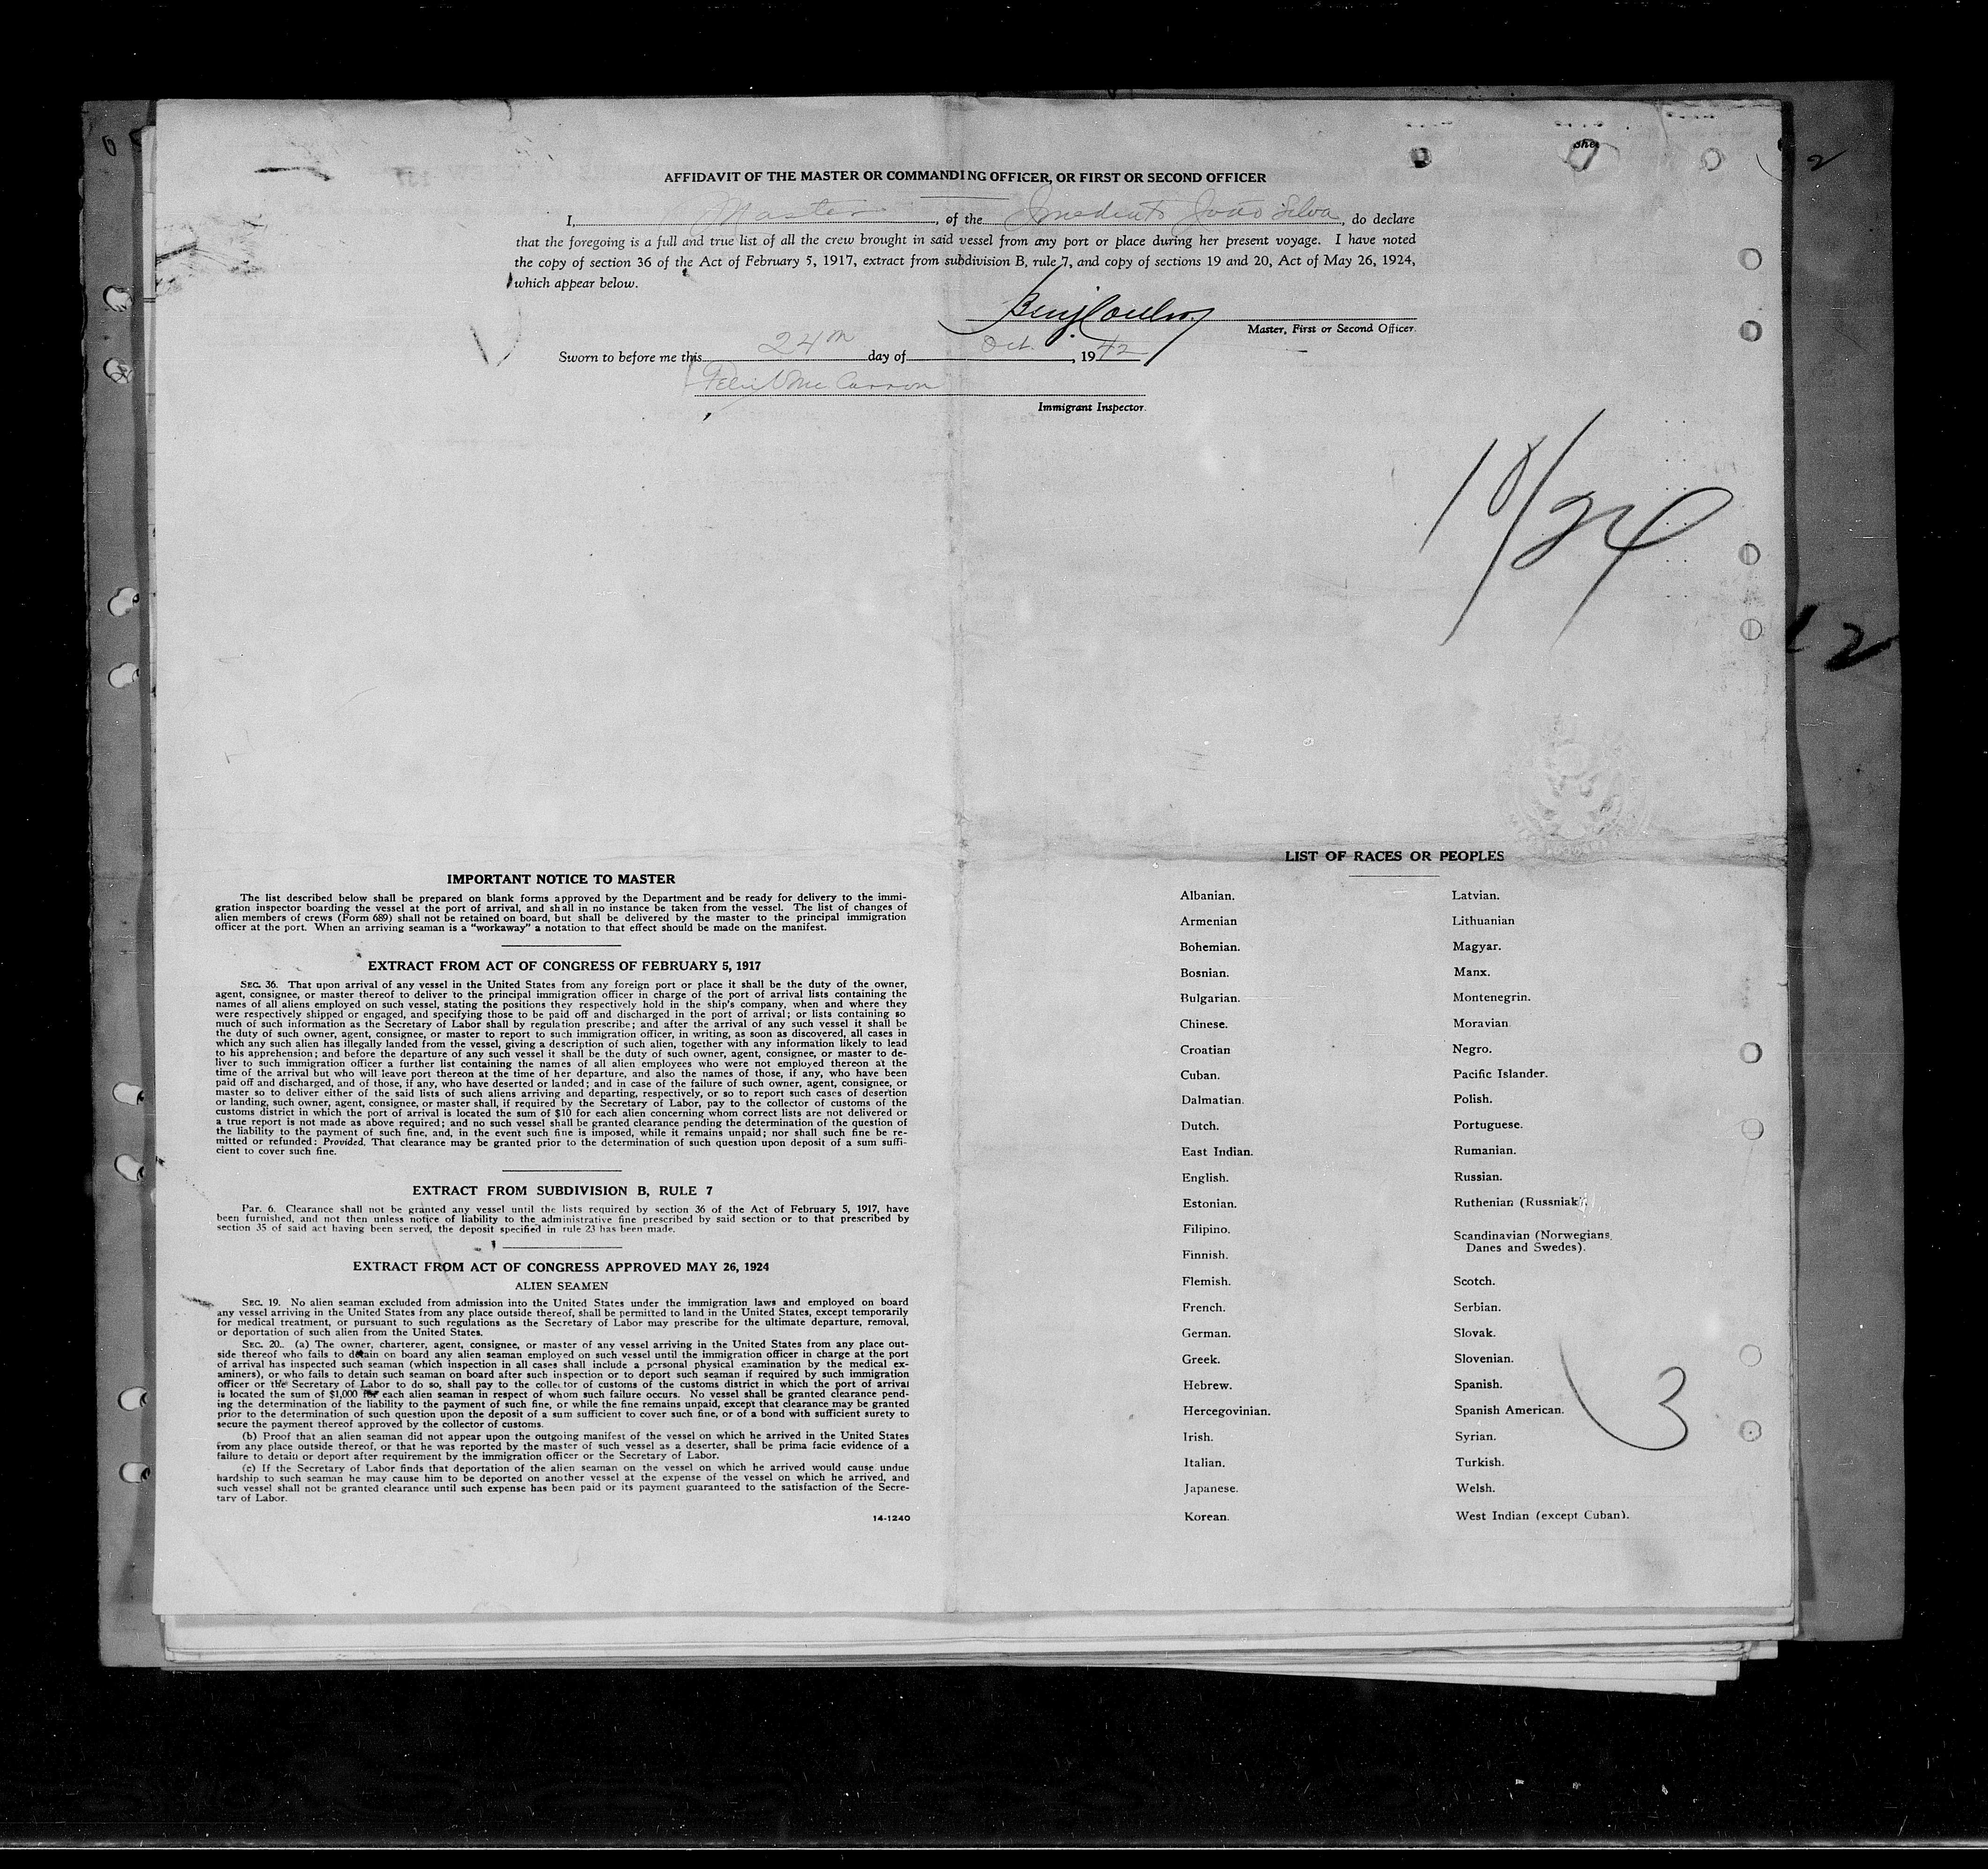 she
2
AFFIDAVIT OF THE MASTER OR COMMANDING OFFICER, OR FIRST OR SECOND OFFICER
I, Master, of the Imediato João Silva, do declare
that the foregoing is a full and true list of all the crew brought in said vessel from any port or place during her present voyage. I have noted
the copy of section 36 of the Act of February 5, 1917, extract from subdivision B, rule 7, and copy of sections 19 and 20, Act of May 26, 1924,
which appear below.
Master, First or Second Officer.
Sworn to before me this 24th day of Oct., 1942
Mc Carron
Immigrant Inspector.
10/24
2
IMPORTANT NOTICE TO MASTER
The list described below shall be prepared on blank forms approved by the Department and be ready for delivery to the immi-
gration inspector boarding the vessel at the port of arrival, and shall in no instance be taken from the vessel. The list of changes of
alien members of crews (Form 689) shall not be retained on board, but shall be delivered by the master to the principal immigration
officer at the port. When an arriving seaman is a "workaway" a notation to that effect should be made on the manifest.
EXTRACT FROM ACT OF CONGRESS OF FEBRUARY 5, 1917
SEC. 36. That upon arrival of any vessel in the United States from any foreign port or place it shall be the duty of the owner,
agent, consignee, or master thereof to deliver to the principal immigration officer in charge of the port of arrival lists containing the
names of all aliens employed on such vessel, stating the positions they respectively hold in the ship's company, when and where they
were respectively shipped or engaged, and specifying those to be paid off and discharged in the port of arrival; or lists containing so
much of such information as the Secretary of Labor shall by regulation prescribe; and after the arrival of any such vessel it shall be
the duty of such owner, agent, consignee, or master to report to such immigration officer, in writing, as soon as discovered, all cases in
which any such alien has illegally landed from the vessel, giving a description of such alien, together with any information likely to lead
to his apprehension; and before the departure of any such vessel it shall be the duty of such owner, agent, consignee, or master to de-
liver to such immigration officer a further list containing the names of all alien employees who were not employed thereon at the
time of the arrival but who will leave port thereon at the time of her departure, and also the names of those, if any, who have been
paid off and discharged, and of those, if any, who have deserted or landed; and in case of the failure of such owner, agent, consignee, or
master so to deliver either of the said lists of such aliens arriving and departing, respectively, or so to report such cases of desertion
or landing, such owner, agent, consignee, or master shall, if required by the Secretary of Labor, pay to the collector of customs of the
customs district in which the port of arrival is located the sum of $10 for each alien concerning whom correct lists are not delivered or
a true report is not made as above required; and no such vessel shall be granted clearance pending the determination of the question of
the liability to the payment of such fine, and, in the event such fine is imposed, while it remains unpaid; nor shall such fine be re-
mitted or refunded: Provided, That clearance may be granted prior to the determination of such question upon deposit of a sum suffi-
cient to cover such fine.
EXTRACT FROM SUBDIVISION B, RULE 7
Par. 6. Clearance shall not be granted any vessel until the lists required by section 36 of the Act of February 5, 1917, have
been furnished, and not then unless notice of liability to the administrative fine prescribed by said section or to that prescribed by
section 35 of said act having been served, the deposit specified in rule 23 has been made.
EXTRACT FROM ACT OF CONGRESS APPROVED MAY 26, 1924
ALIEN SEAMEN
SEC. 19. No alien seaman excluded from admission into the United States under the immigration laws and employed on board
any vessel arriving in the United States from any place outside thereof, shall be permitted to land in the United States, except temporarily
for medical treatment, or pursuant to such regulations as the Secretary of Labor may prescribe for the ultimate departure, removal,
or deportation of such alien from the United States.
SEC. 20. (a) The owner, charterer, agent, consignee, or master of any vessel arriving in the United States from any place out-
side thereof who fails to detain on board any alien seaman employed on such vessel until the immigration officer in charge at the port
of arrival has inspected such seaman (which inspection in all cases shall include a personal physical examination by the medical ex-
aminers), or who fails to detain such seaman on board after such inspection or to deport such seaman if required by such immigration
officer or the Secretary of Labor to do so, shall pay to the collector of customs of the customs district in which the port of arrival
is located the sum of $1,000 for each alien seaman in respect of whom such failure occurs. No vessel shall be granted clearance pend-
ing the determination of the liability to the payment of such fine, or while the fine remains unpaid, except that clearance may be granted
prior to the determination of such question upon the deposit of a sum sufficient to cover such fine, or of a bond with sufficient surety to
secure the payment thereof approved by the collector of customs.
(b) Proof that an alien seaman did not appear upon the outgoing manifest of the vessel on which he arrived in the United States
from any place outside thereof, or that he was reported by the master of such vessel as a deserter, shall be prima facie evidence of a
failure to detain or deport after requirement by the immigration officer or the Secretary of Labor.
(c) If the Secretary of Labor finds that deportation of the alien seaman on the vessel on which he arrived would cause undue
hardship to such seaman he may cause him to be deported on another vessel at the expense of the vessel on which he arrived, and
such vessel shall not be granted clearance until such expense has been paid or its payment guaranteed to the satisfaction of the Secre-
tary of Labor.
14-1240
LIST OF RACES OR PEOPLES
Albanian.
Armenian
Bohemian.
Bosnian.
Bulgarian.
Chinese.
Croatian
Cuban.
Dalmatian.
Dutch.
East Indian.
English.
Estonian.
Filipino.
Finnish.
Flemish.
French.
German.
Greek.
Hebrew.
Hercegovinian.
Irish.
Italian.
Japanese.
Korean.
Latvian.
Lithuanian
Magyar.
Manx.
Montenegrin.
Moravian
Negro.
Pacific Islander.
Polish.
Portuguese.
Rumanian.
Russian.
Ruthenian (Russniak).
Scandinavian (Norwegians,
Danes and Swedes).
Scotch.
Serbian.
Slovak.
Slovenian.
Spanish.
Spanish American.
Syrian.
Turkish.
Welsh.
West Indian (except Cuban).
3